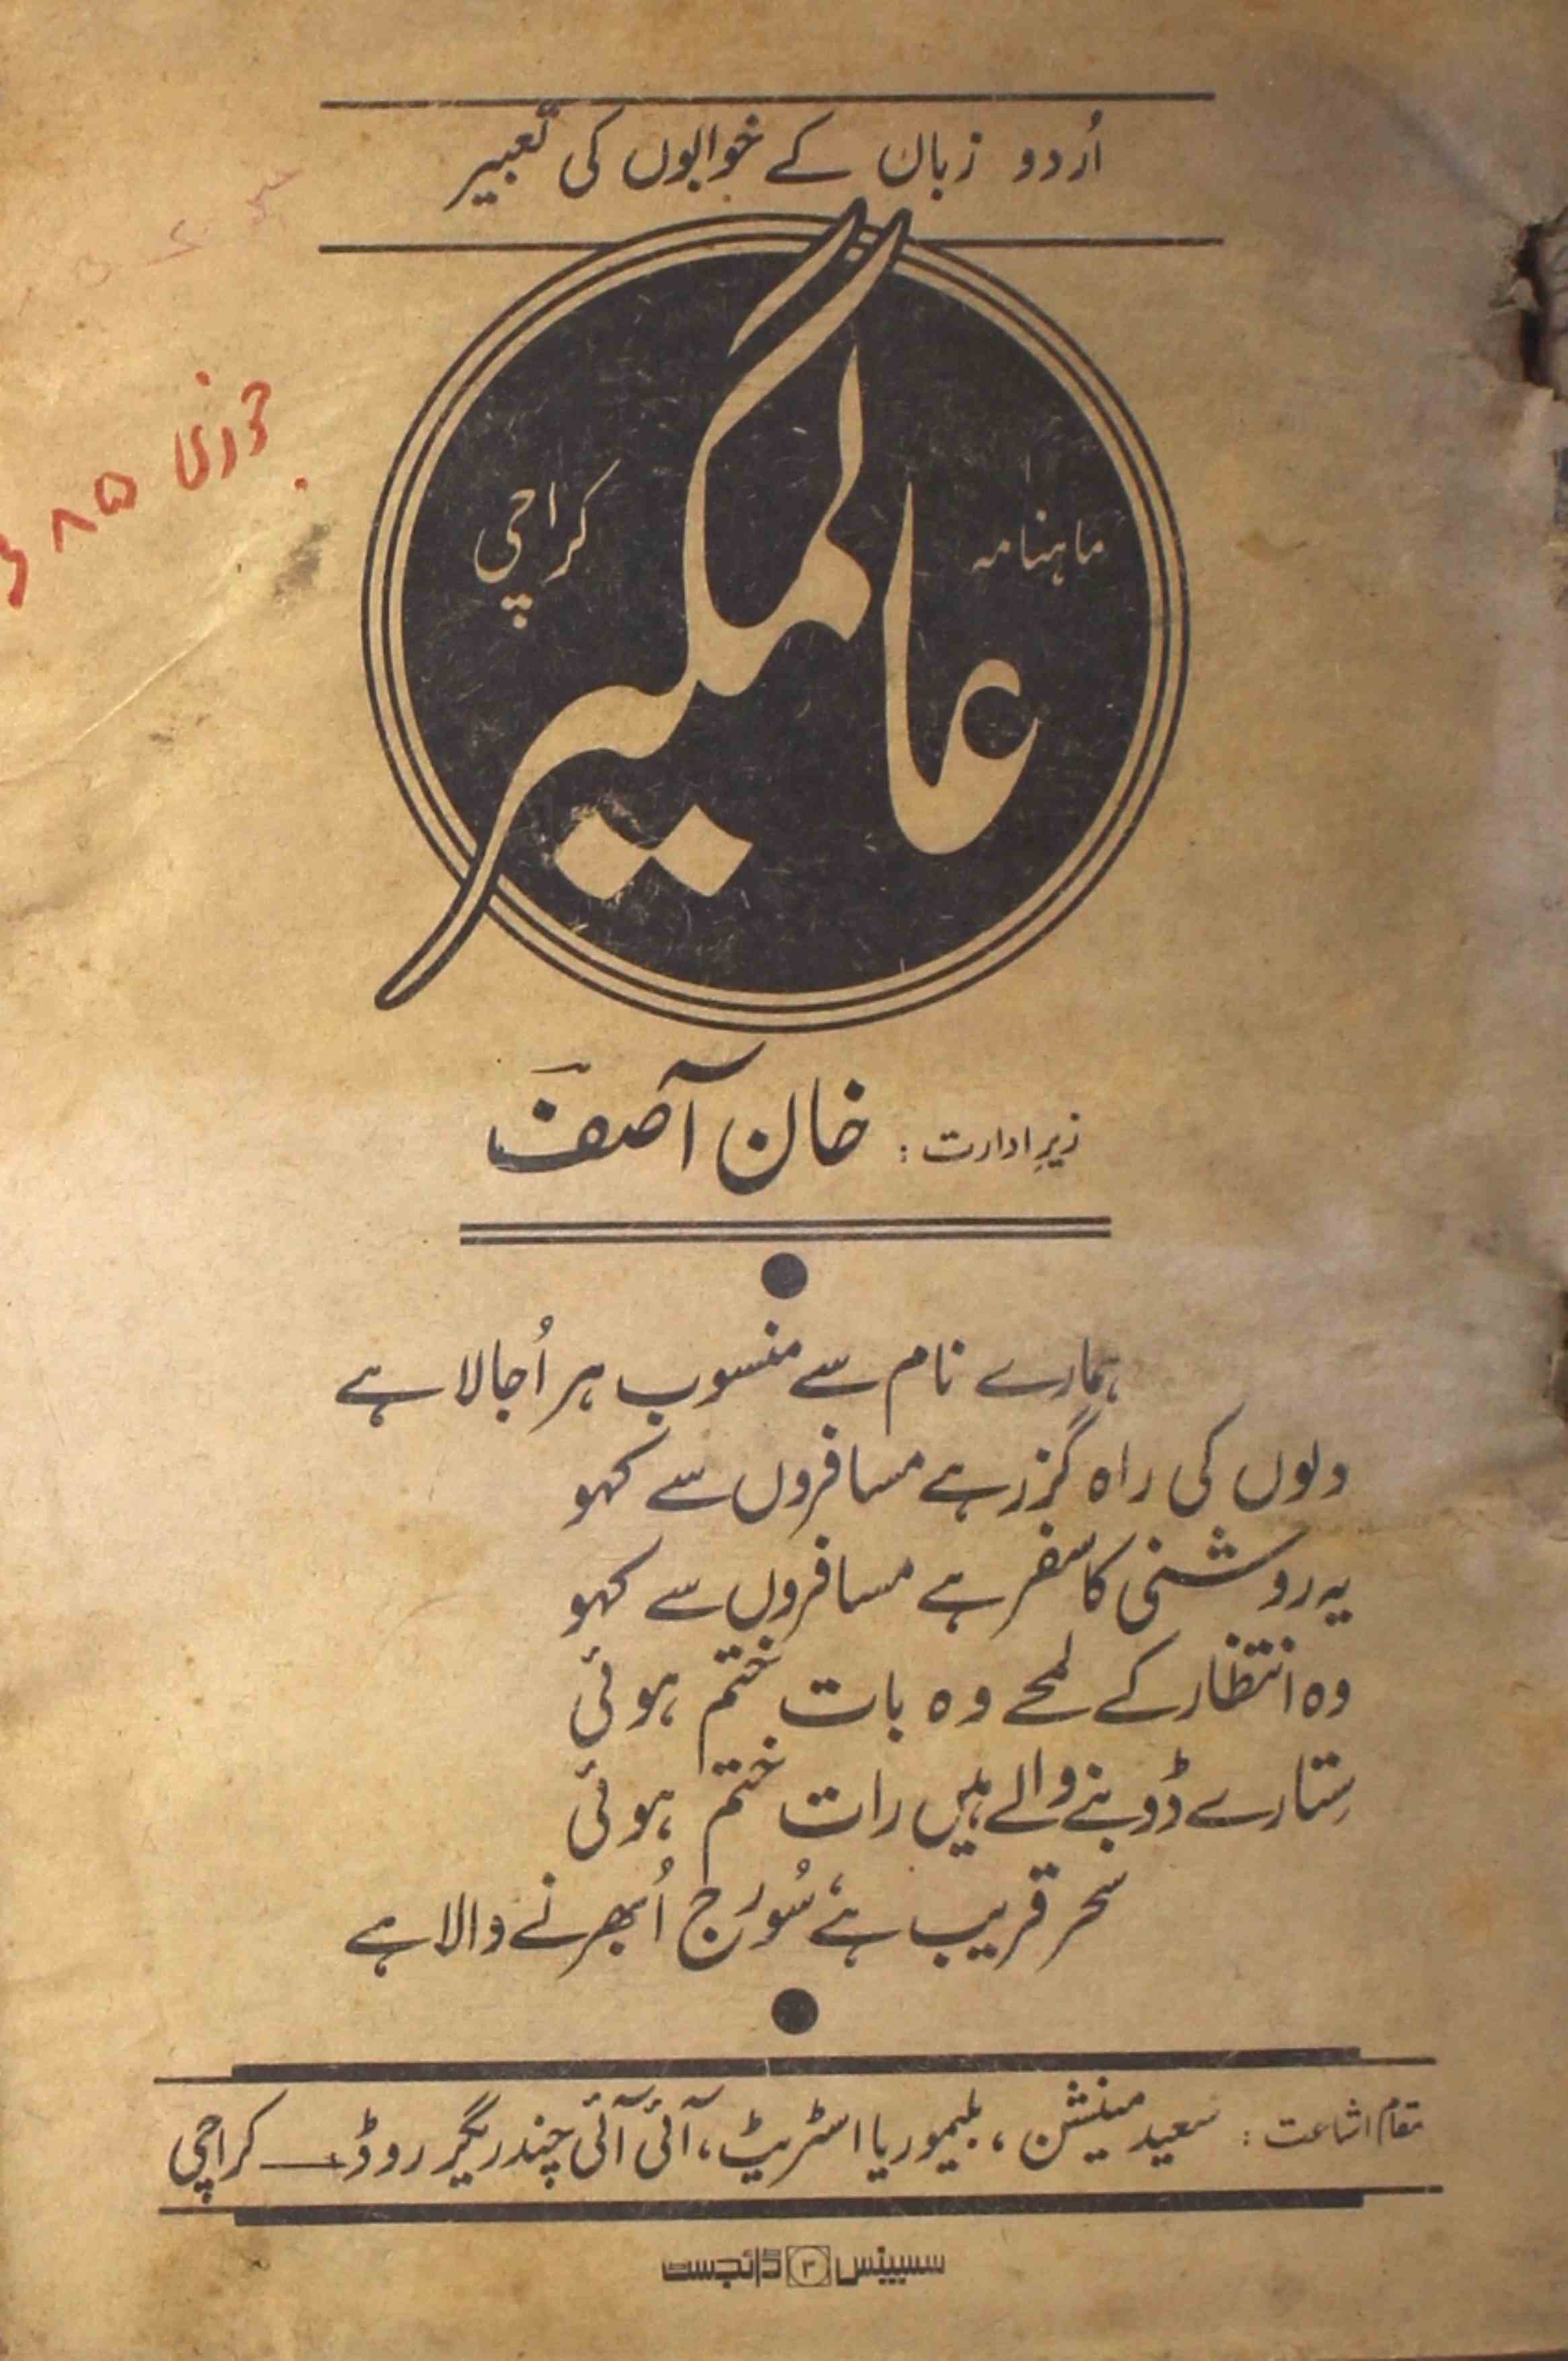 اُردو زبان کے خوابوں کی تعبیر
ماہنامہ
عالمگیر
کراچی
جنوری ۸۵ء
زیرِ ادارت : خان آصف
ہمارے نام سے منسوب ہر اُجالا ہے
دلوں کی راہ گزر ہے مسافروں سے کہو
یہ روشنی کا سفر ہے مسافروں سے کہو
وہ انتظار کے لمحے وہ بات ختم ہوئی
ستارے ڈوبنے والے ہیں رات ختم ہوئی
سحر قریب ہے، سُورج اُبھرنے والا ہے
مقام اشاعت : سعید مینشن، بلیموریا اسٹریٹ، آئی آئی چندریگر روڈ ــ کراچی
سسپنس ۳ ڈائجسٹ